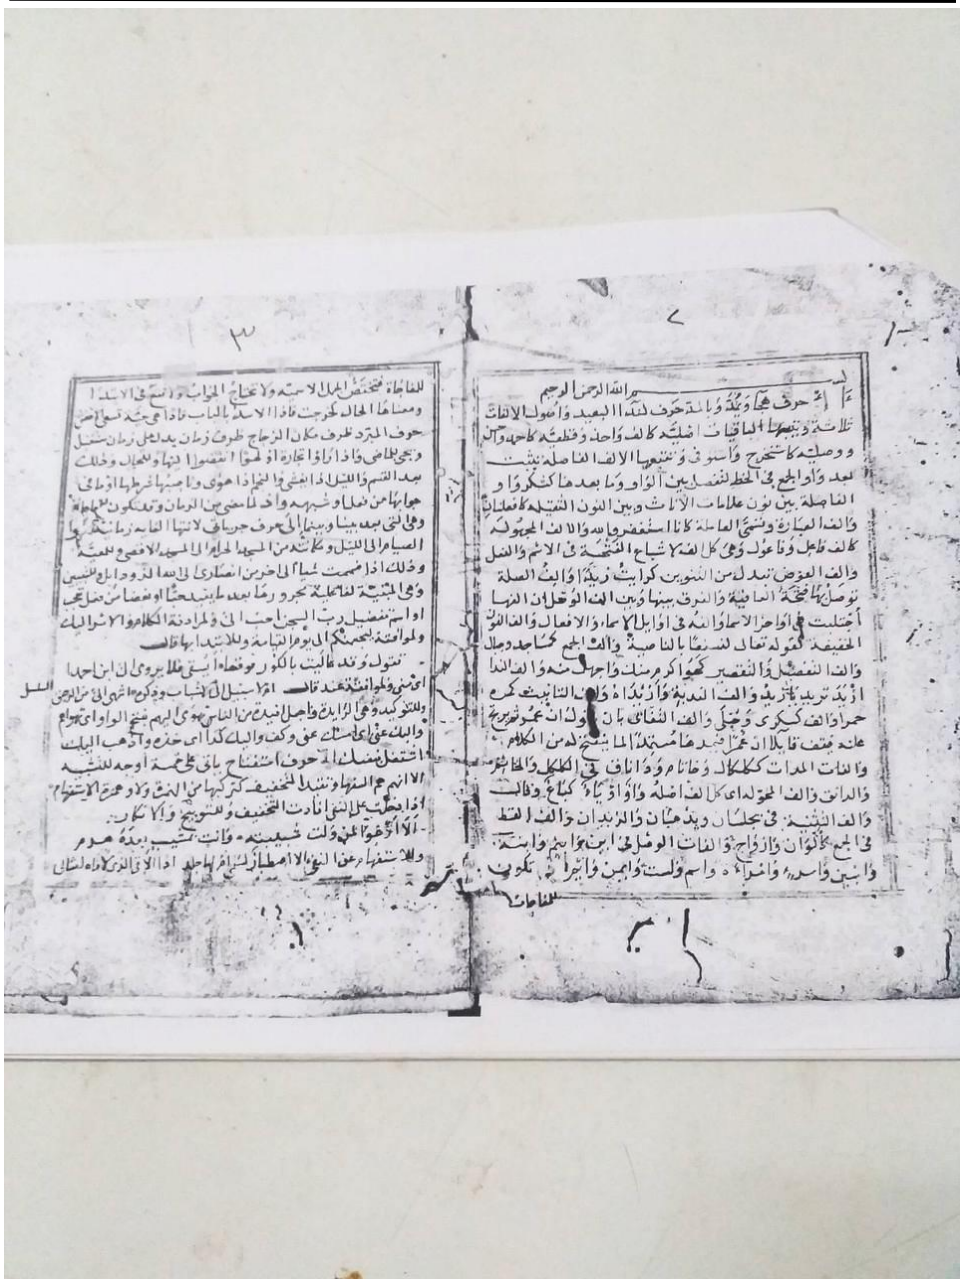 ٢
بسم الله الرحمن الرحيم
أ حرف هجاء ويمد وبالمد حرف لنداء البعيد وأصول الالفات
ثلاثة ويتبعها الباقيات اصلية كالف واحد وقطعية كاحمد واحسن
ووصلية كاستخرج واستوفى ويتبعها الالف الفاصلة تثبت
بعد واو الجمع في الخط لتفصل بين الواو وما بعدها كشكروا و
الفاصلة بين نون علامات الاناث وبين النون الثقيلة كافعلنان
والف العبارة وتسمى العاملة كانا استغفر الله والالف المجهولة
كالف فاعل وفاعول وهي كل الف لاشباع الفتحة في الاسم والفعل
والف العوض تبدل من التنوين كرايت زيدا والف الصلة
توصل بها فتحة القافية والفرق بينها وبين الف الوصل ان الفها
اجتلبت في اواخر الاسماء والفه في اوايل الاسماء والافعال والف النون
الخفيفة كقوله تعالى لنسفعا بالناصية والف الجمع كمساجد وجبال
والف التفضيل والتقصير كهو اكرم منك واجهل منه والف الندا
ازيد تريد يا زيد والف الندبة وازيداه والف التانيث كمدة
حمرا والف سكرى وحبلى والف التعايي بان يقول ان عمر ثم يرتج
عليه فيقف قايلا ان عمرا فيمدها مستمدا لما ينفتح له من الكلام
والفات المدات ككلكال وخاتام وداناق في الكلكل والخاتم
والدانق والف المحولة اي كل الف اصله واو او ياء كباع وقال
والف التثنية في يجلسان ويذهبان والزيدان والف القطع
في الجمع كالوان وازواج والفات الوصل في ابن وابنم وابنة
وابنين واسم وامراة واسم واست وايمن وايم اذا تكون
للفاجاة
٣
للفاجاة فتختص بالجمل الاسمية ولا تحتاج لجواب ولا تقع في الابتدا
ومعناها الحال كخرجت فاذا الاسد بالباب فاذا هي حية تسعى الاخفش
حرف المبرد ظرف مكان الزجاج ظرف زمان يدل على زمان مستقبل
وتجي للماضي واذا راوا تجارة او لهوا انفضوا اليها وللحال وذلك
بعد القسم والليل اذا يغشى والنجم اذا هوى وناصبها شرطها او ما في
جوابها من فعل او شبهه واذ لما مضى من الزمان وقد تكون للمفاجاة
وهي التي بعد بينا وبينما إلى حرف جر ياتي لانتها الغاية زمانية ثم اتموا
الصيام الى الليل ومكانية من المسجد الحرام الى المسجد الاقصى وللمعية
وذلك اذا ضممت شيأ الى اخر من انصاري الى الله الذود ابل وللتبيين
وهي المبينة لفاعلية مجرورها بعد ما يفيد حبا او بغضا من فعل تعجب
او اسم تفضيل رب السجن احب الي ولمرادفة اللام والامر اليك
ولموافقة في ليجمعنكم الى يوم القيامة وللابتدا بها قال
تقول وقد عاليت بالكور فوقها ايسقى فلا يروى الى ابن احمرا
اي مني ولموافقة عند قال ام لا سبيل الى الشباب وذكره اشهى الي من الرحيق
السلسل
وللتوكيد وهي الزايدة واجعل افيدة من الناس تهوى اليهم بفتح الواو اي تهواهم
واليك عني اي امسك عني وكف واليك كذا اي خذه واذهب اليك
اشتغل بنفسك ألا حرف استفتاح ياتي على خمسة اوجه للتنبيه
الا انهم هم السفهاء وتفيد التحقيق لتركيبها من الهمزة ولا وهمزة الاستفهام
اذا دخلت على النفي افادت التحقيق وللتوبيخ والانكار
ألا ارعواء لمن ولت شبيبته واذنت بمشيب بعده هرم
وللاستفهام عن النفي الا اصطبار لسلمى ام لها جلد اذا الاقي الذي لاقاه امثالي